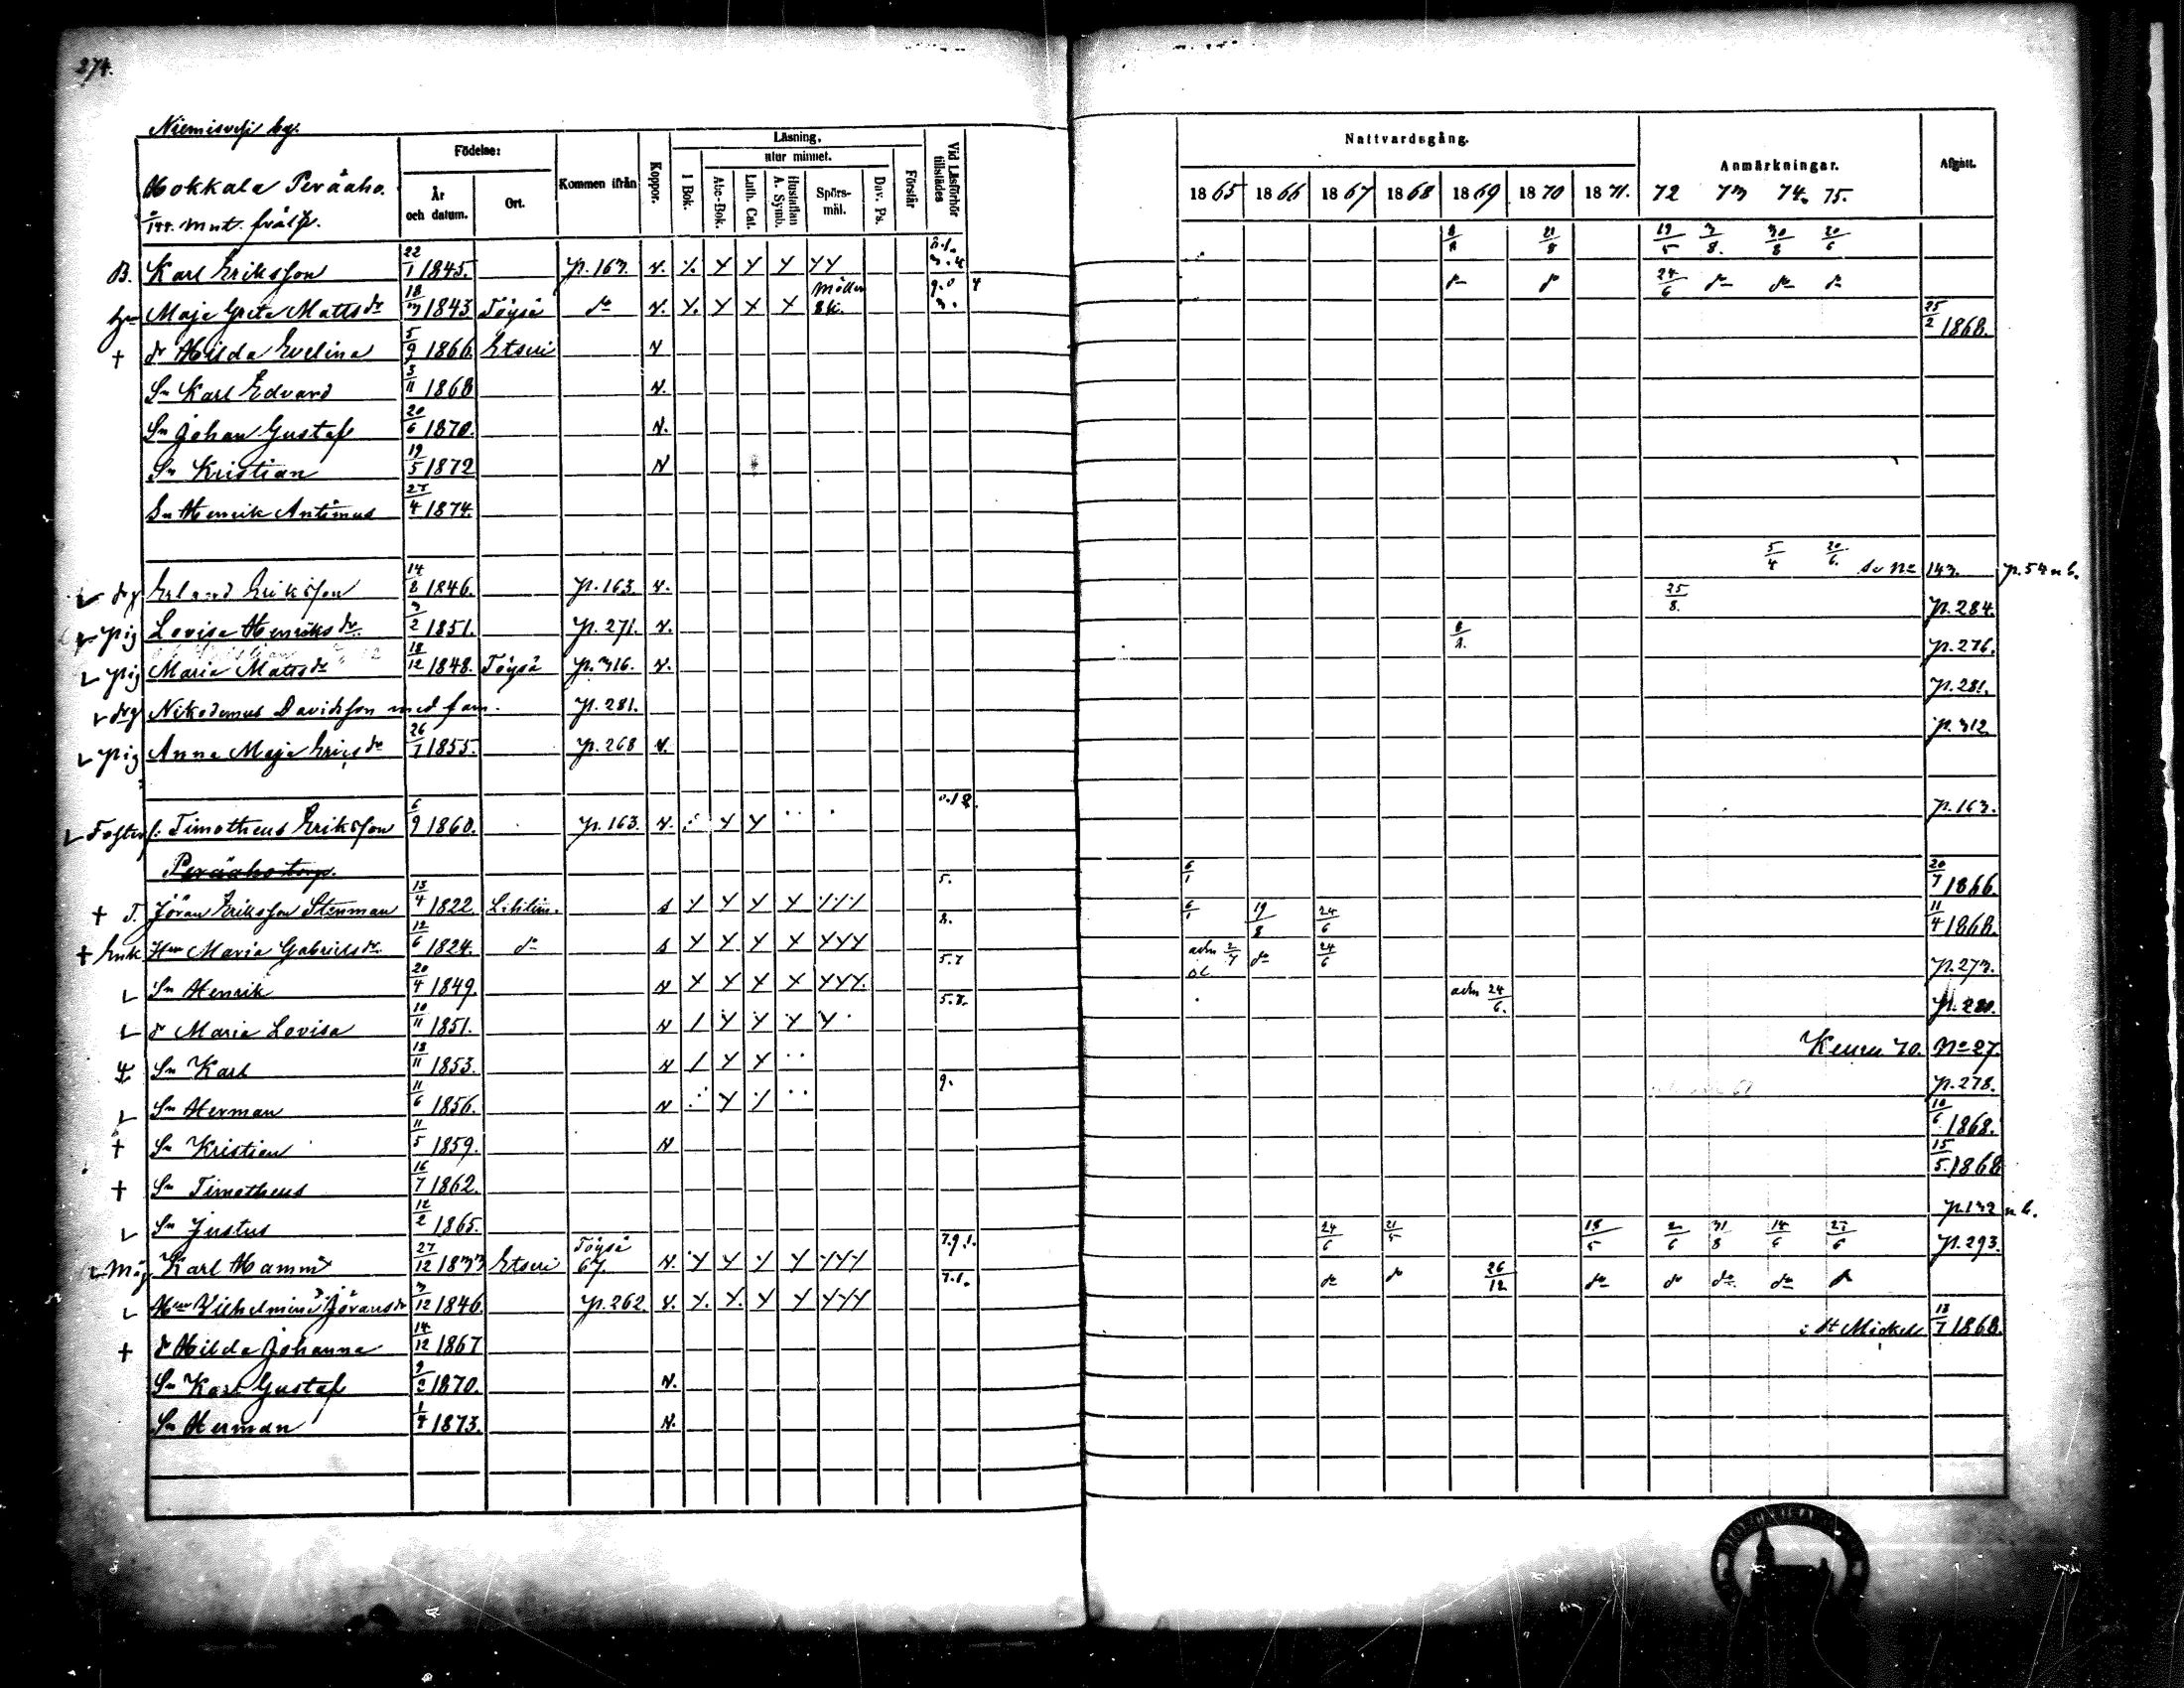 274.
Niemisvesi by.
Hokkala Peräaho.
mnt. frälse.
Födelse:
År och datum.
Ort.
Kommen ifrån
Koppor.
Läsning.
I Bok.
utur minnet.
Abc-Bok.
Luth. Cat.
Hustaflan A. Symb.
Spörs-mål.
Dav. Ps.
Förstår
Vid Läsförhör tillstädes
Nattvardsgång.
1865 1866 1867 1868 1869 1870 1871.
Anmärkningar.
72 73 74. 75.
Afgått.
B. Karl Eriksson 22/1 1845. p. 163. v. 8/8 21/8 19/5 3/8. 30/8 20/6
Maja Greta Matts dr 18/3 1843 Töysä do v. 24/6 do do do
† dr Hilda Evelina 5/9 1866 Etseri v 25/2 1868.
Sn Karl Edvard 3/11 1868 v.
Sn Johan Gustaf 20/6 1870. v.
Sn Kristian 19/5 1872 v
Sn Henrik Antimus 27/4 1874.
drg Erland Eriksson 14/8 1846. p. 163. v. 5/4 20/6. 143. p. 54 n b.
pig Lovisa Henriks dr. 3/2 1851. p. 271. v. 25/8. p. 284.
pig Maria Matts dr 18/12 1848. Töysä p. 316. v. 8/8. p. 276.
drg Nikodemus Davidsson med fam. p. 281. p. 281.
pig Anna Maja Erics dr 26/7 1855. p. 268 v. p. 312
Foster s: Timotheus Eriksson 6/9 1860. p. 163. v. p. 163.
Peräaho torp.
† T. Jöran Eriksson Stenman 13/4 1822. s 5. 6/1 20/7 1866.
† Enk. Hu Maria Gabriels dr 12/6 1824. do s 8. 6/1 19/8 24/6 11/4 1868.
Sn Henrik 20/4 1849. v 5.7 adm do 24/6 p. 273.
dr Maria Lovisa 10/11 1851. v 5.8. adm 24/6. p. 280.
Sn Karl 18/11 1853. v Keuru 70. No 27.
Sn Herman 11/6 1856. v 9. p. 278.
† Sn Kristian 11/5 1859. v 10/6 1868.
† Sn Timotheus 16/7 1862. 15/5. 1868
Sn Justus 12/2 1865. p. 132 n b.
Måg Karl Hamm 27/12 1833 Etseri Töysä 67. v. 7.9.1. 24/6 21/5 18/5 2/6 31/8 14/6 27/6 p. 293.
Hu Vilhelmina Jörans dr 3/12 1846. p. 262. v. 7.1. do do 26/12 do do do do do
† dr Hilda Johanna 14/12 1867 i St Mickel 13/7 1868.
Sn Karl Gustaf 9/2 1870. v.
Sn Herman 1/4 1873. v.